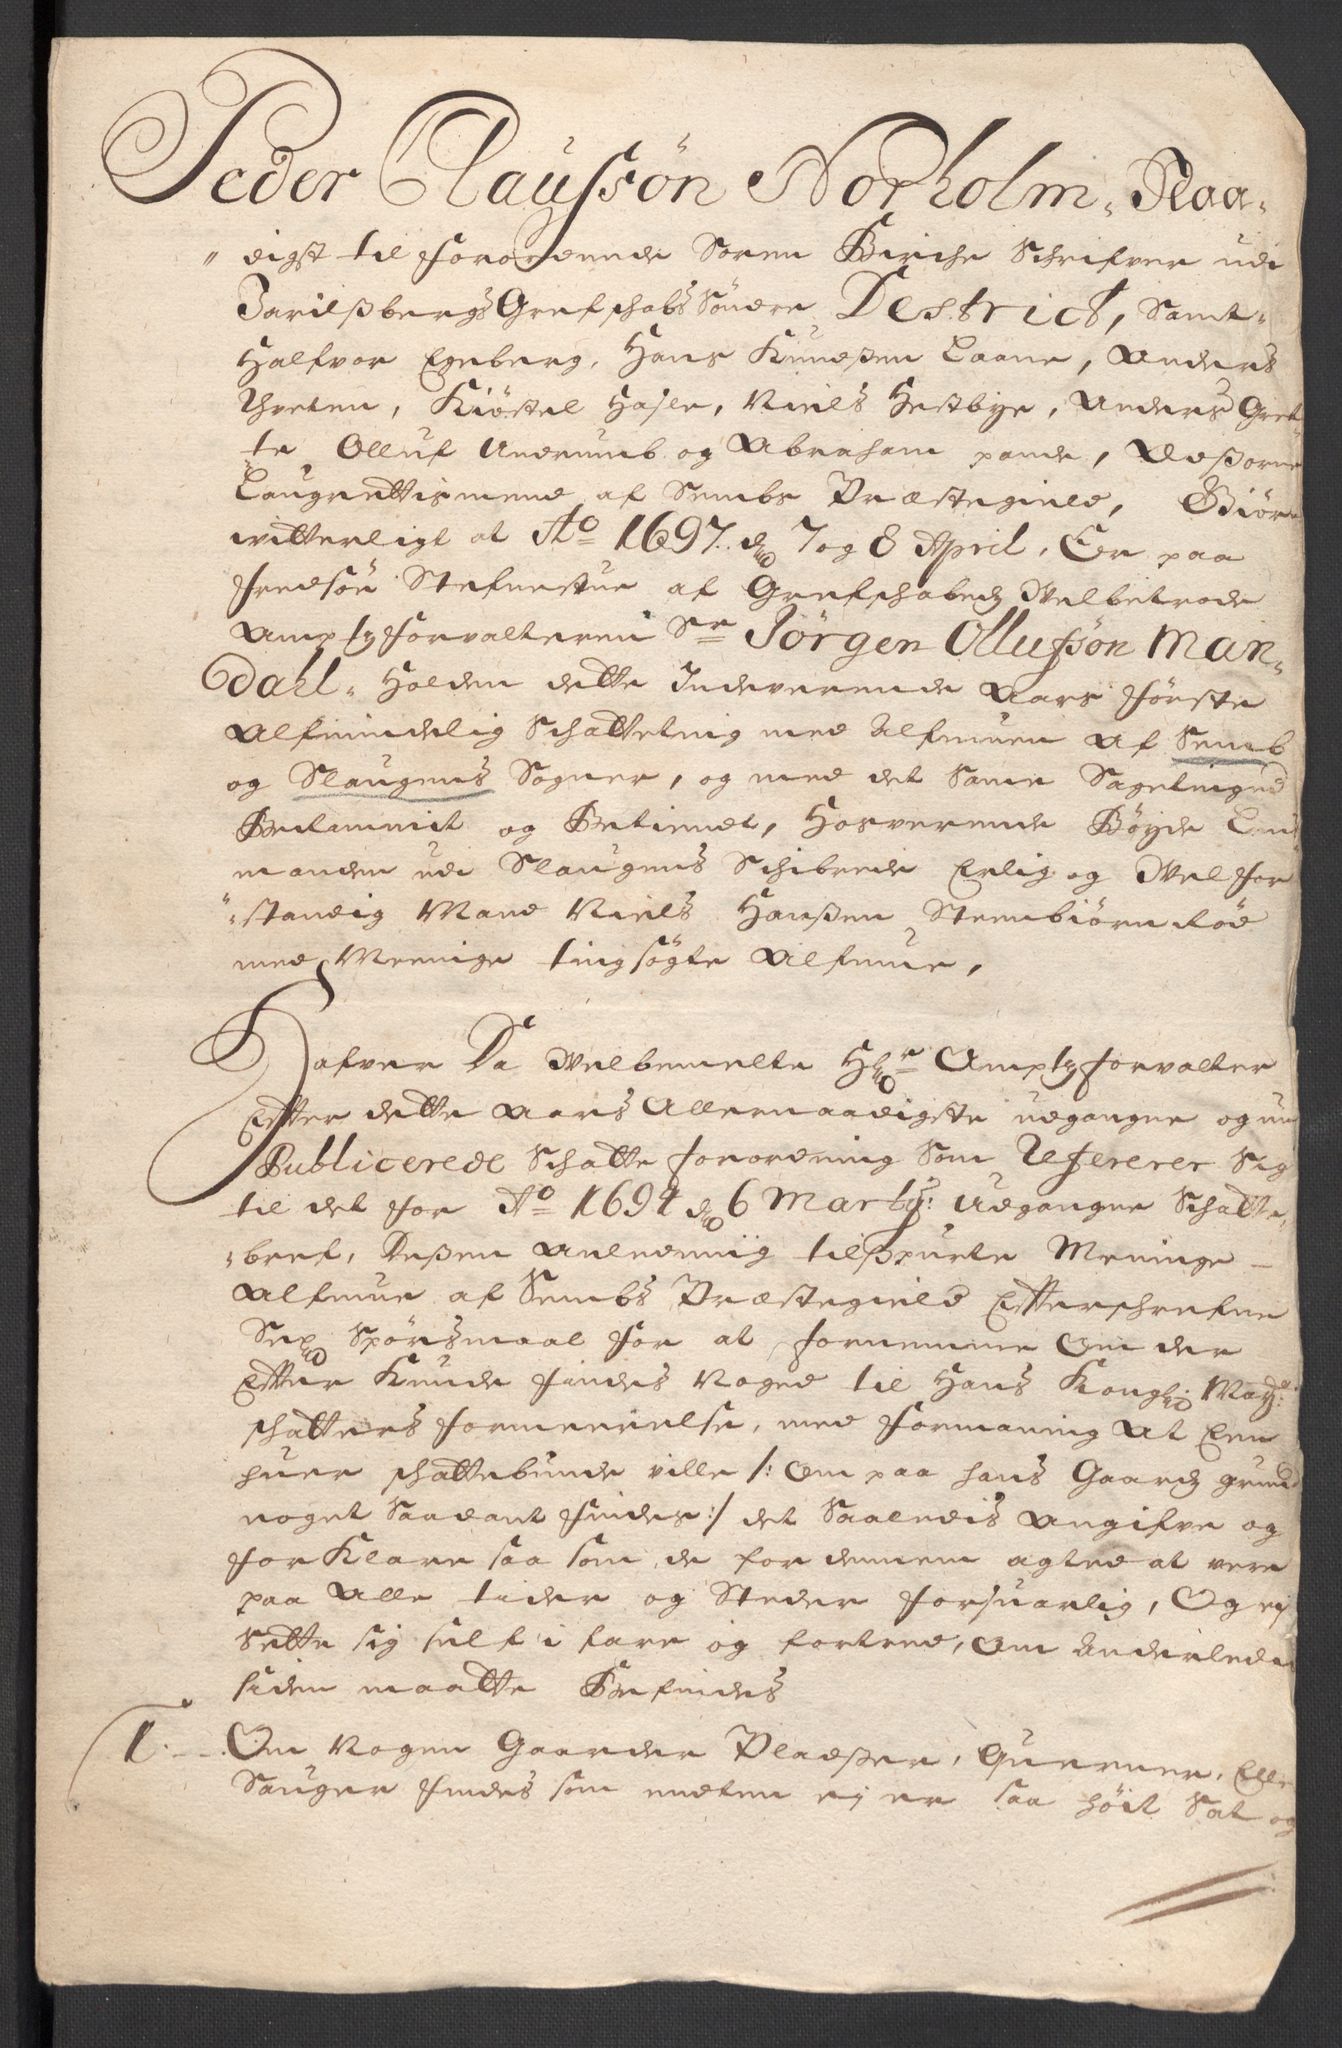 Peder Claussøn Norholm, Naa-
digst til forordende Soren Birche Schrifver udi
Jarlsbergs Grefschabs Søndre Destrict, Samt
Halfvor Egeberg, Hans Knudsen Laane, Anders
Thveten, Kiøstel Hasle, Niels Hestbye, Anders Gret-
te, Olluf Undrumb og Abraham pande,
Laugrettismend af Sembs Præstegield, Giør
witterligt at Ao 1697. d. 7 og 8 April, Er paa
Fredsøe Stefnestue af Grefschabedz Welbetrode
Amptzforvalteren Sr Jørgen Ollufsøn Man-
dahl, Holden dette Indeverende Aars Første
Alfmindelig Schatteting med Alfmuen af Semb
og Slaugens Sogner, og med det Same Sageting
Berammit og Betiendt, Hosverende Bøyde Lens
manden udi Slaugens Schibrede Erlig og Wel for
standig Mand Niels Hanßen Steenbiørnrød
med Meenige ting søgte Alfmue,
Hafver Da Welbemelte Hr Amptzforvalter
Efter dette Aars Allernaadigste udgangne og nu
Publicerede Schatte forordning Som Refererer Sig
til det for Ao 1694 d. 6 Martij: Udgangne Schatte
bref, Deßen Anledning tilspurte Meninge
Alfmue af Sembs Præstegield Efterschrefne
Sex Spørsmaal for at fornemme Om der
Efter Kunde findes Noged til Hans Kongl: Mayts:
schatters formeerelse, med formaning At Een
huer schattebunde ville /: Om paa hans Gaardz grund
noget Saadant findes :/ det Saaledis Angifve og
forklare saa som de for dennem agted at vere
paa Alle tider og Steder forsuarlig, Og ej
Sette sig self i fare og fortred, Om Anderledes
siden maatte Befindes
1. Om Nogen Gaarder Pladßer, Querner, Elle
Sauger findes som endten ej er saa høit Sat og